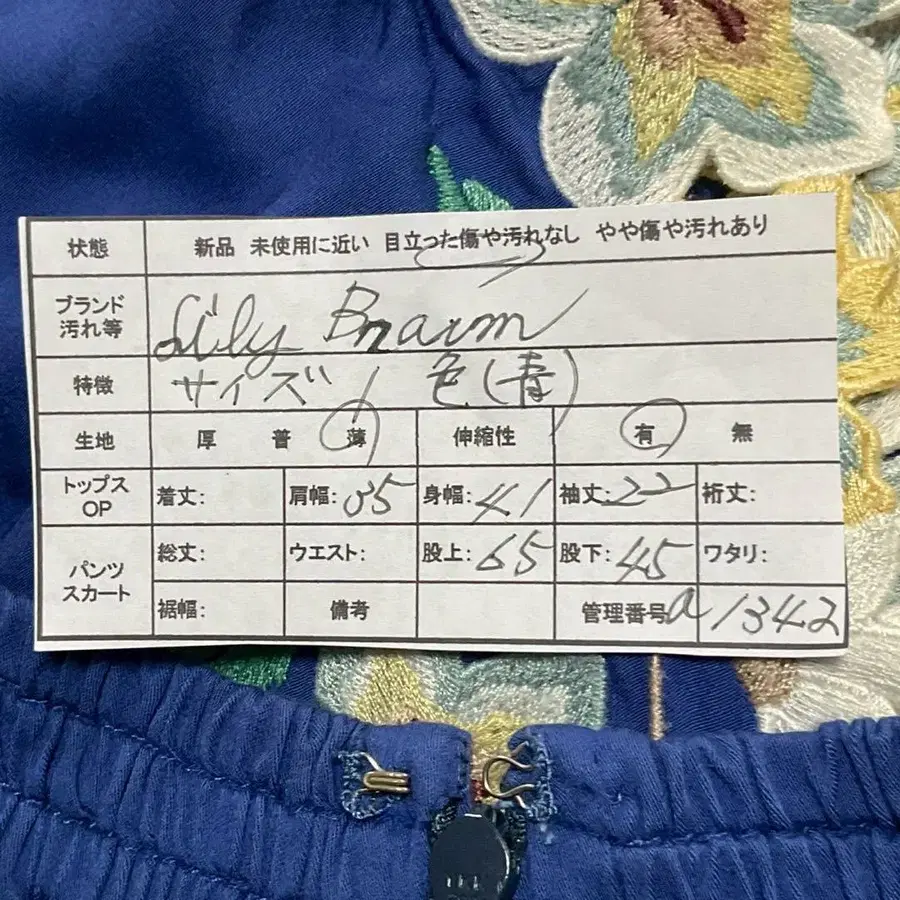 状態 新品 未使用に近い 目立った傷や汚れなし やや傷や汚れあり
ブランド
汚れ等 Lily Bnaım
特徴 サイズ 1 色(青)
生地 厚 普 薄 伸縮性 有 無
トップス
OP 着丈: 肩幅:35 身幅:41 袖丈:22 裄丈:
パンツ
スカート 総丈: ウエスト: 股上:65 股下:45 ワタリ:
裾幅: 備考 管理番号 a1342